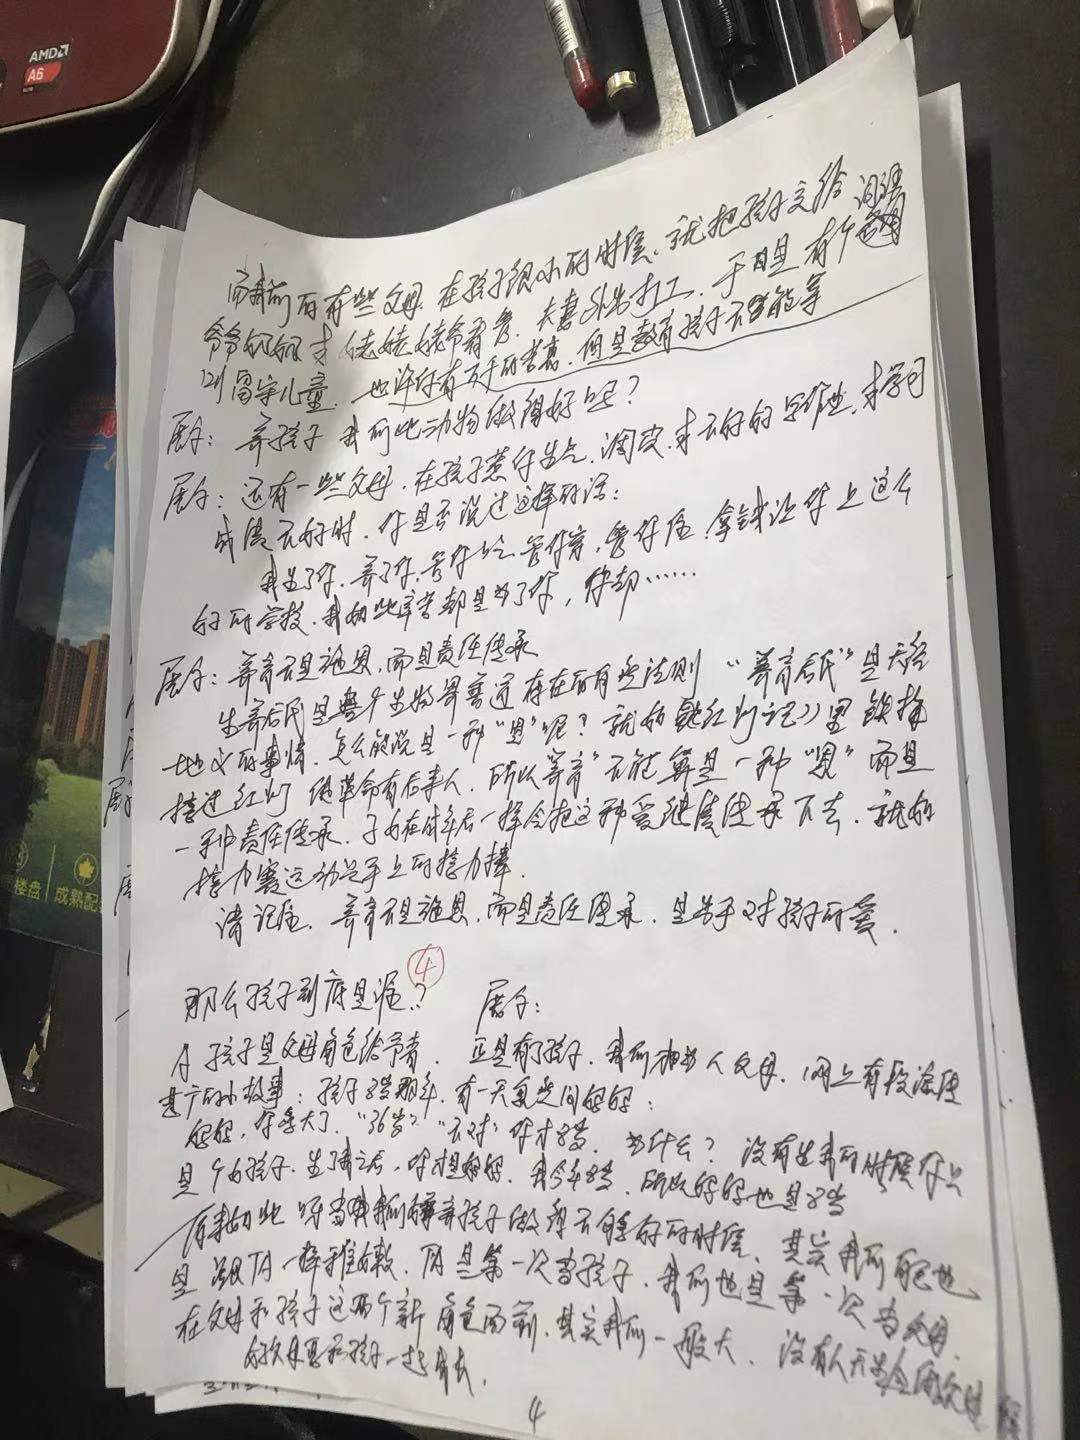 AMD
A6
而我们的有些父母,在孩子很小的时候,就把孩子交给
爷爷奶奶 姥姥姥爷看管,夫妻外出打工,于是有个
叫留守儿童,也许你有万千的苦衷,但是教育孩子不能等
展子:养孩子 我们比动物做得好吗?
展子:还有一些父母,在孩子惹你生气,调皮,不好好写作业,学习
成绩不好时,你是否说过这样的话:
我生了你,养了你,管你吃,管你穿,管你住,拿钱让你上这么
好的学校,我的些辛苦都是为了你,你却……
展子:养育不是施恩,而是责任传承
生养后代是整个生物界普遍存在的有些法则 "养育后代"是天经
地义的事情,怎么能说是一种"恩"呢?就如《红灯记》里铁梅
接过红灯 使革命有后来人,所以"养育"不能算是一种"恩"而是
一种责任传承,子女在成年后一样会把这种爱继续传承下去,就如
接力赛运动员手上的接力棒,
请记住,养育不是施恩,而是责任传承,是出于对孩子的爱,
④
那么孩子到底是谁? 展子:
A 孩子是父母角色给予者,正是有了孩子,我们才为人父母,网上有段流传
甚广的小故事:孩子8岁那年,有一天突然问妈妈:
妈妈,你多大了,"36岁","不对,你才8岁,为什么?没有生我的时候你只
是个女孩子,生了我之后,你才是妈妈,我今年8岁,所以妈妈也是8岁
做得不够好的时候,其实我们自己也
是跟TA一样稚嫩,TA是第一次当孩子,我们也是第一次当父母,
在父母和孩子这两个新角色面前,其实我们一般大,没有人天生会做父母
父母要和孩子一起成长,
4
楼盘
成熟配